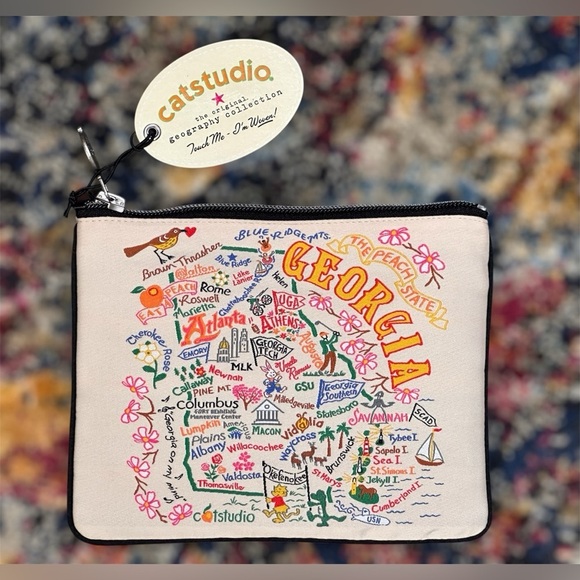 catstudio
the original
geography collection
Touch Me - I'm Woven!
BLUE RIDGE MTS.
THE PEACH STATE
GEORGIA
Brown Thrasher
Dalton
Blue Ridge
Helen
EAT A PEACH
Rome
Lake Lanier
Roswell
Chattahoochee R.
Marietta
Atlanta
UGA
ATHENS
Augusta
Cherokee Rose
EMORY
GEORGIA TECH
MLK
Newnan
Uncle Remus
Callaway
PINE MT.
GSU
Georgia Southern
Columbus
FORT BENNING
Maneuver Center
Milledgeville
Statesboro
SAVANNAH
SCAD
Lumpkin
Americus
MACON
Vidalia
Plains
Albany
Willacoochee
Waycross
Tybee I.
Sapelo I.
Sea I.
St Simons I.
Jekyll I.
Brunswick
Georgia on my mind
Valdosta
Thomasville
Okefenokee
St Marys
Cumberland I.
catstudio
USH